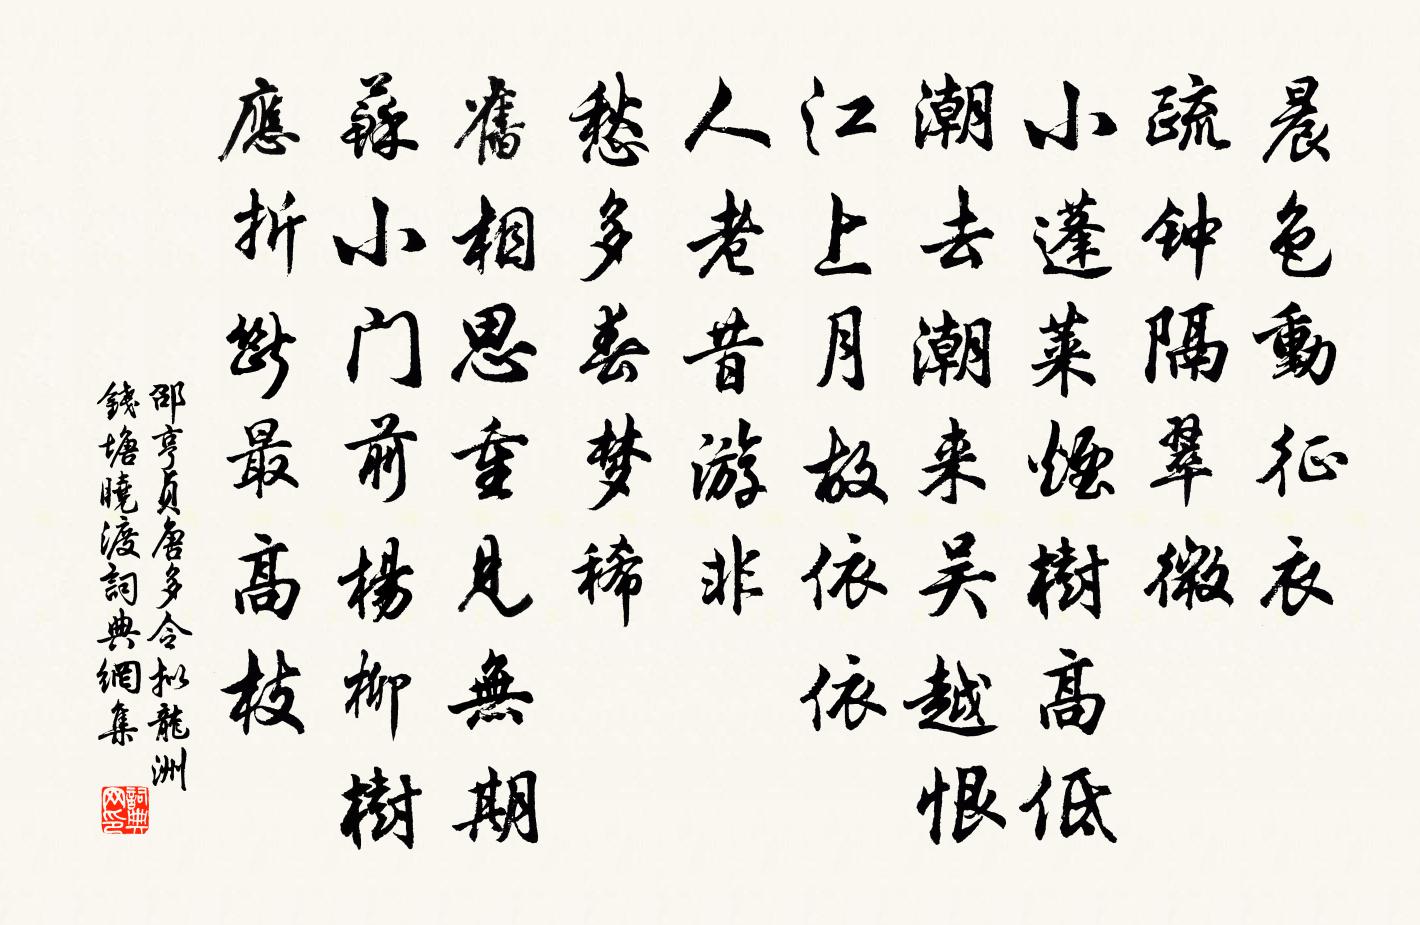 晨色動征衣
疏钟隔翠微
小蓬莱煙樹高低
潮去潮来吴越恨
江上月故依依
人老昔游非
愁多春梦稀
舊相思重見無期
蘇小门前楊柳樹
應折斷最高枝
邵亨貞唐多令拟龍洲
錢塘曉渡詞典網集
詞典网印